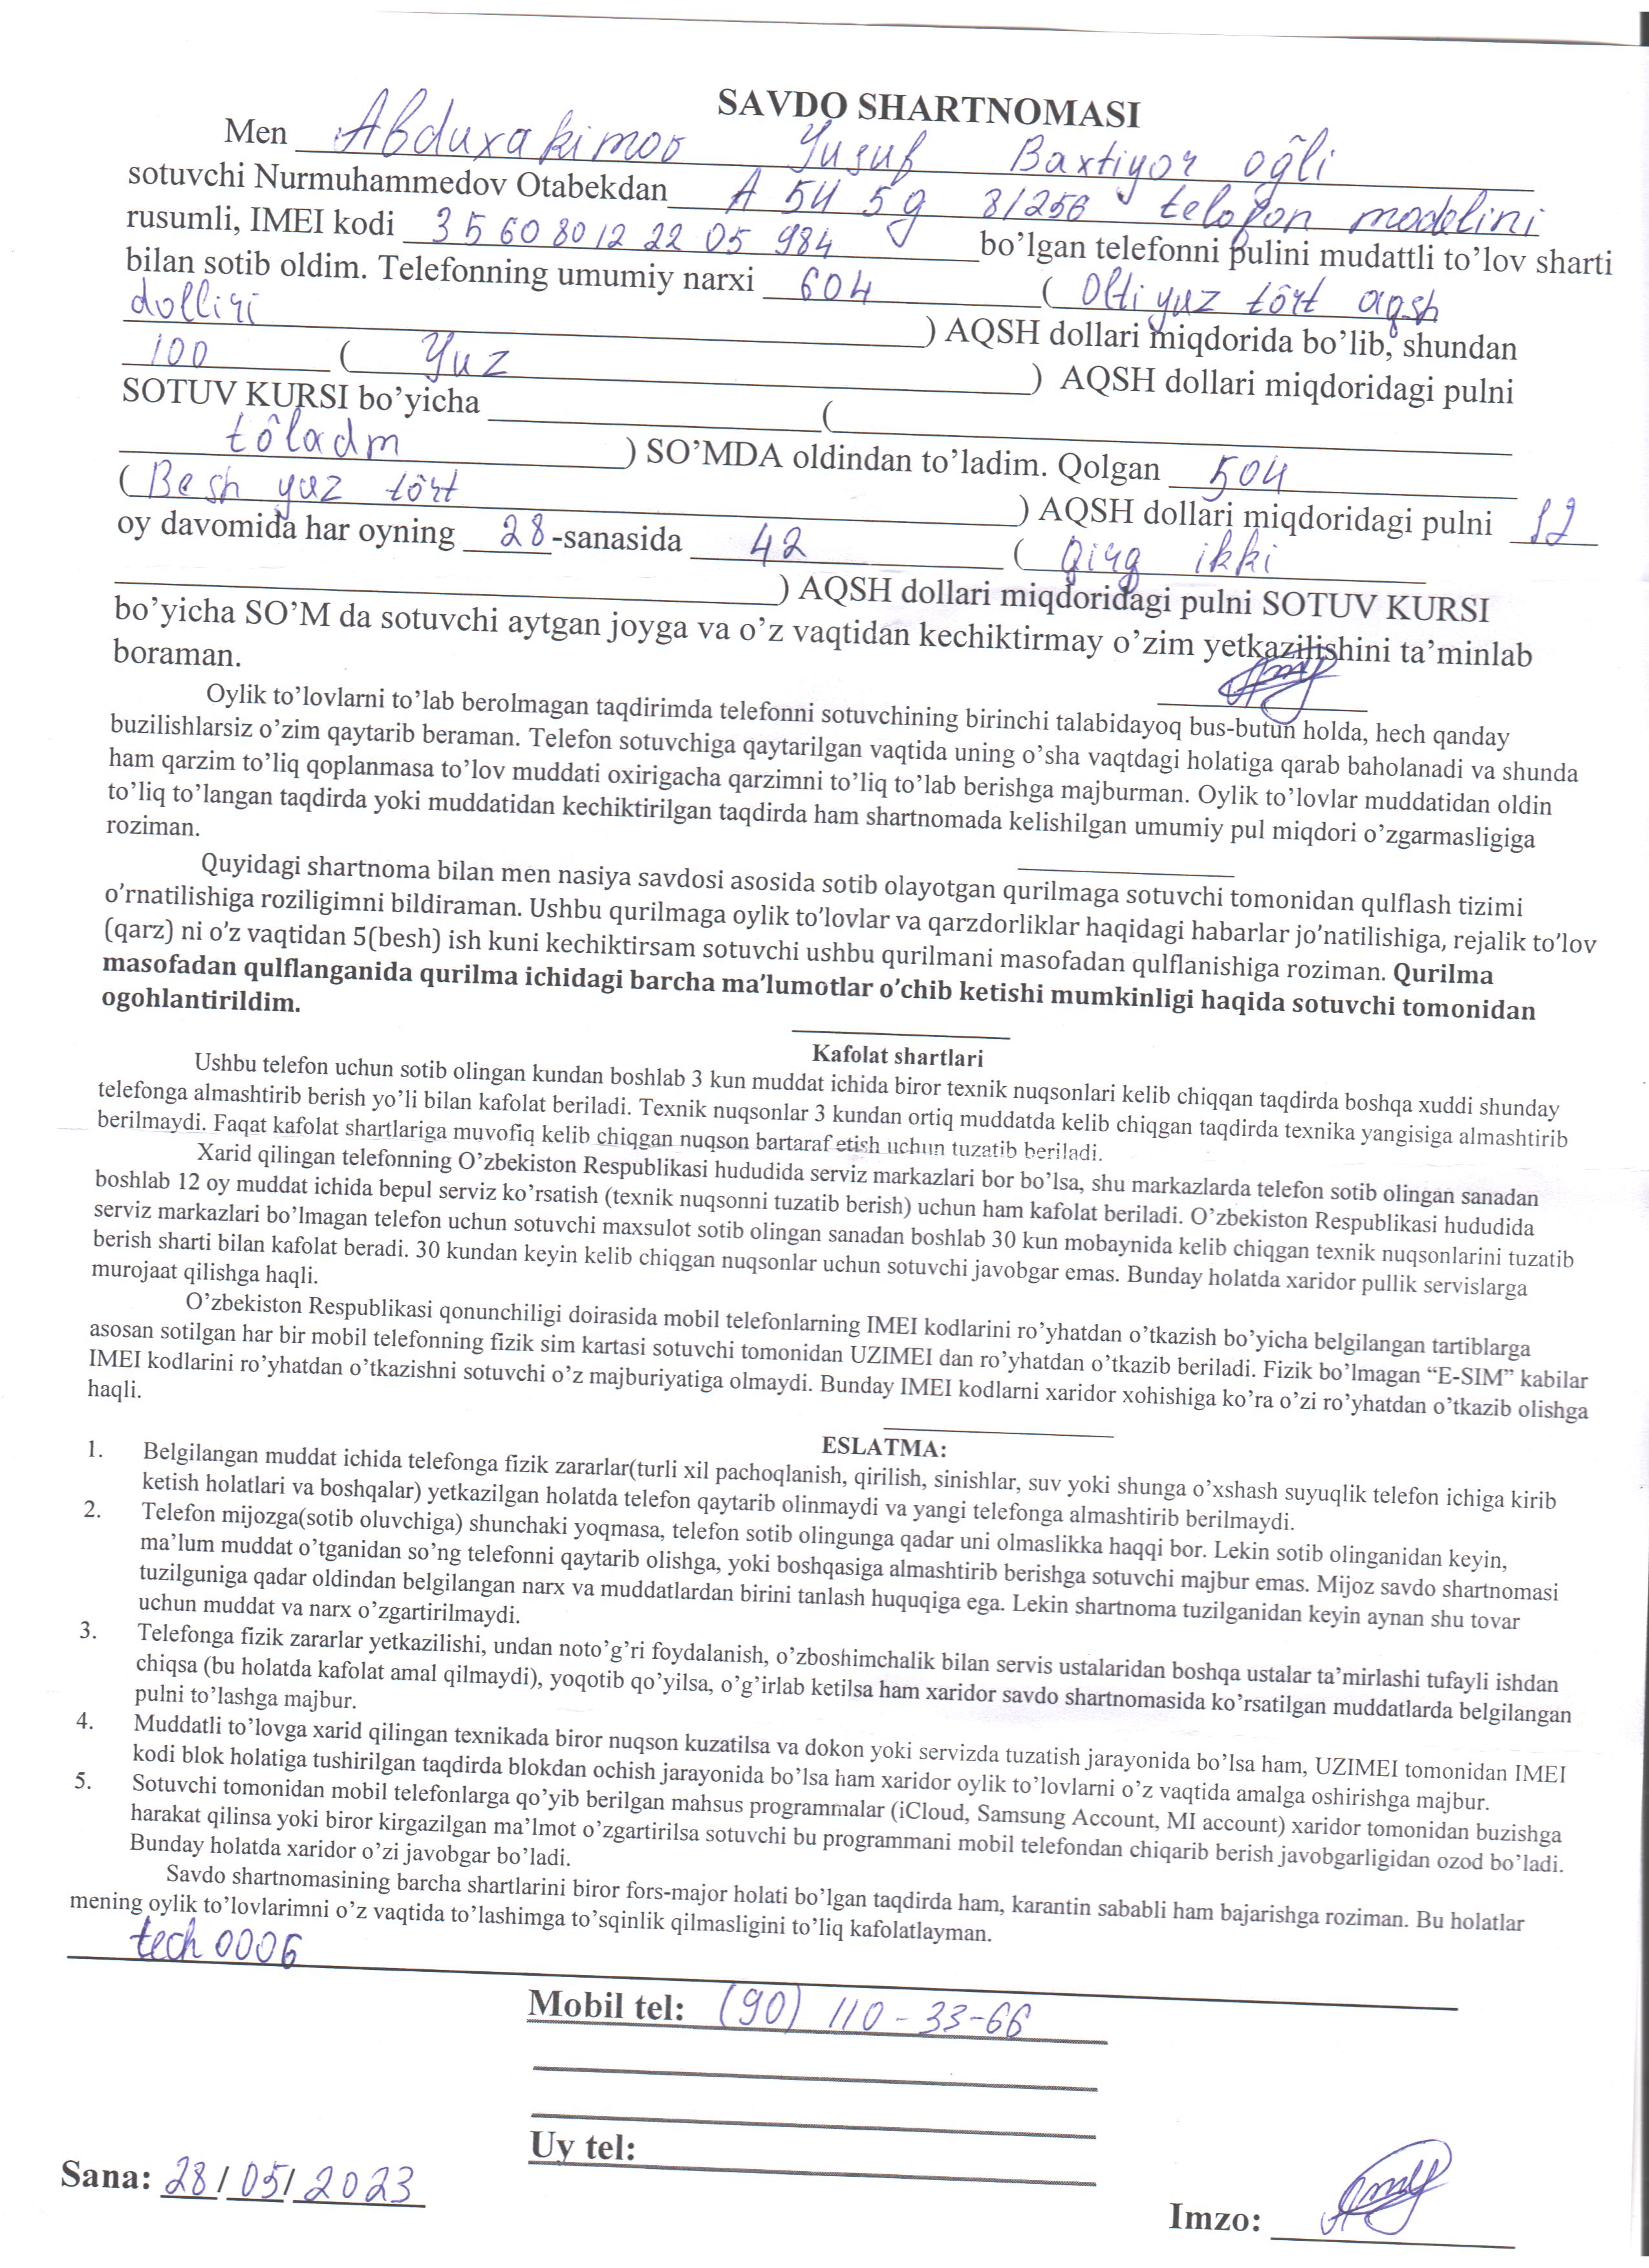 SAVDO SHARTNOMASI
Men Abduxakimov Yusuf Baxtiyor oĝli
sotuvchi Nurmuhammedov Otabekdan A 54 5g 8/256 telofon modelini
rusumli, IMEI kodi 3560801222 05 984 bo’lgan telefonni pulini mudattli to’lov sharti
bilan sotib oldim. Telefonning umumiy narxi 604 ( Olti yuz tôrt aqsh
dolliri ) AQSH dollari miqdorida bo’lib, shundan
100 ( Yuz ) AQSH dollari miqdoridagi pulni
SOTUV KURSI bo’yicha (
tôladm ) SO’MDA oldindan to’ladim. Qolgan 504
( Besh yuz tôrt ) AQSH dollari miqdoridagi pulni 12
oy davomida har oyning 28-sanasida 42 ( Qirq ikki
) AQSH dollari miqdoridagi pulni SOTUV KURSI
bo’yicha SO’M da sotuvchi aytgan joyga va o’z vaqtidan kechiktirmay o’zim yetkazilishini ta’minlab
boraman.
Oylik to’lovlarni to’lab berolmagan taqdirimda telefonni sotuvchining birinchi talabidayoq bus-butun holda, hech qanday
buzilishlarsiz o’zim qaytarib beraman. Telefon sotuvchiga qaytarilgan vaqtida uning o’sha vaqtdagi holatiga qarab baholanadi va shunda
ham qarzim to’liq qoplanmasa to’lov muddati oxirigacha qarzimni to’liq to’lab berishga majburman. Oylik to’lovlar muddatidan oldin
to’liq to’langan taqdirda yoki muddatidan kechiktirilgan taqdirda ham shartnomada kelishilgan umumiy pul miqdori o’zgarmasligiga
roziman.
Quyidagi shartnoma bilan men nasiya savdosi asosida sotib olayotgan qurilmaga sotuvchi tomonidan qulflash tizimi
o’rnatilishiga roziligimni bildiraman. Ushbu qurilmaga oylik to’lovlar va qarzdorliklar haqidagi habarlar jo’natilishiga, rejalik to’lov
(qarz) ni o’z vaqtidan 5(besh) ish kuni kechiktirsam sotuvchi ushbu qurilmani masofadan qulflanishiga roziman. Qurilma
masofadan qulflanganida qurilma ichidagi barcha ma’lumotlar o’chib ketishi mumkinligi haqida sotuvchi tomonidan
ogohlantirildim.
Kafolat shartlari
Ushbu telefon uchun sotib olingan kundan boshlab 3 kun muddat ichida biror texnik nuqsonlari kelib chiqqan taqdirda boshqa xuddi shunday
telefonga almashtirib berish yo’li bilan kafolat beriladi. Texnik nuqsonlar 3 kundan ortiq muddatda kelib chiqgan taqdirda texnika yangisiga almashtirib
berilmaydi. Faqat kafolat shartlariga muvofiq kelib chiqgan nuqson bartaraf etish uchun tuzatib beriladi.
Xarid qilingan telefonning O’zbekiston Respublikasi hududida serviz markazlari bor bo’lsa, shu markazlarda telefon sotib olingan sanadan
boshlab 12 oy muddat ichida bepul serviz ko’rsatish (texnik nuqsonni tuzatib berish) uchun ham kafolat beriladi. O’zbekiston Respublikasi hududida
serviz markazlari bo’lmagan telefon uchun sotuvchi maxsulot sotib olingan sanadan boshlab 30 kun mobaynida kelib chiqgan texnik nuqsonlarini tuzatib
berish sharti bilan kafolat beradi. 30 kundan keyin kelib chiqgan nuqsonlar uchun sotuvchi javobgar emas. Bunday holatda xaridor pullik servislarga
murojaat qilishga haqli.
O’zbekiston Respublikasi qonunchiligi doirasida mobil telefonlarning IMEI kodlarini ro’yhatdan o’tkazish bo’yicha belgilangan tartiblarga
asosan sotilgan har bir mobil telefonning fizik sim kartasi sotuvchi tomonidan UZIMEI dan ro’yhatdan o’tkazib beriladi. Fizik bo’lmagan “E-SIM” kabilar
IMEI kodlarini ro’yhatdan o’tkazishni sotuvchi o’z majburiyatiga olmaydi. Bunday IMEI kodlarni xaridor xohishiga ko’ra o’zi ro’yhatdan o’tkazib olishga
haqli.
ESLATMA:
1. Belgilangan muddat ichida telefonga fizik zararlar(turli xil pachoqlanish, qirilish, sinishlar, suv yoki shunga o’xshash suyuqlik telefon ichiga kirib
ketish holatlari va boshqalar) yetkazilgan holatda telefon qaytarib olinmaydi va yangi telefonga almashtirib berilmaydi.
2. Telefon mijozga(sotib oluvchiga) shunchaki yoqmasa, telefon sotib olingunga qadar uni olmaslikka haqqi bor. Lekin sotib olinganidan keyin,
ma’lum muddat o’tganidan so’ng telefonni qaytarib olishga, yoki boshqasiga almashtirib berishga sotuvchi majbur emas. Mijoz savdo shartnomasi
tuzilguniga qadar oldindan belgilangan narx va muddatlardan birini tanlash huquqiga ega. Lekin shartnoma tuzilganidan keyin aynan shu tovar
uchun muddat va narx o’zgartirilmaydi.
3. Telefonga fizik zararlar yetkazilishi, undan noto’g’ri foydalanish, o’zboshimchalik bilan servis ustalaridan boshqa ustalar ta’mirlashi tufayli ishdan
chiqsa (bu holatda kafolat amal qilmaydi), yoqotib qo’yilsa, o’g’irlab ketilsa ham xaridor savdo shartnomasida ko’rsatilgan muddatlarda belgilangan
pulni to’lashga majbur.
4. Muddatli to’lovga xarid qilingan texnikada biror nuqson kuzatilsa va dokon yoki servizda tuzatish jarayonida bo’lsa ham, UZIMEI tomonidan IMEI
kodi blok holatiga tushirilgan taqdirda blokdan ochish jarayonida bo’lsa ham xaridor oylik to’lovlarni o’z vaqtida amalga oshirishga majbur.
5. Sotuvchi tomonidan mobil telefonlarga qo’yib berilgan mahsus programmalar (iCloud, Samsung Account, MI account) xaridor tomonidan buzishga
harakat qilinsa yoki biror kirgazilgan ma’lmot o’zgartirilsa sotuvchi bu programmani mobil telefondan chiqarib berish javobgarligidan ozod bo’ladi.
Bunday holatda xaridor o’zi javobgar bo’ladi.
Savdo shartnomasining barcha shartlarini biror fors-major holati bo’lgan taqdirda ham, karantin sababli ham bajarishga roziman. Bu holatlar
mening oylik to’lovlarimni o’z vaqtida to’lashimga to’sqinlik qilmasligini to’liq kafolatlayman.
tech 0006
Mobil tel: (90) 110-33-66
Uy tel:
Sana: 28/05/2023
Imzo: